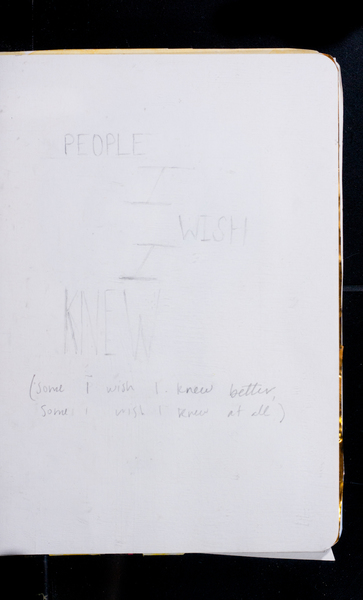 PEOPLE
I
WISH
I
KNEW
(some I wish I knew better,
some i wish I knew at all)